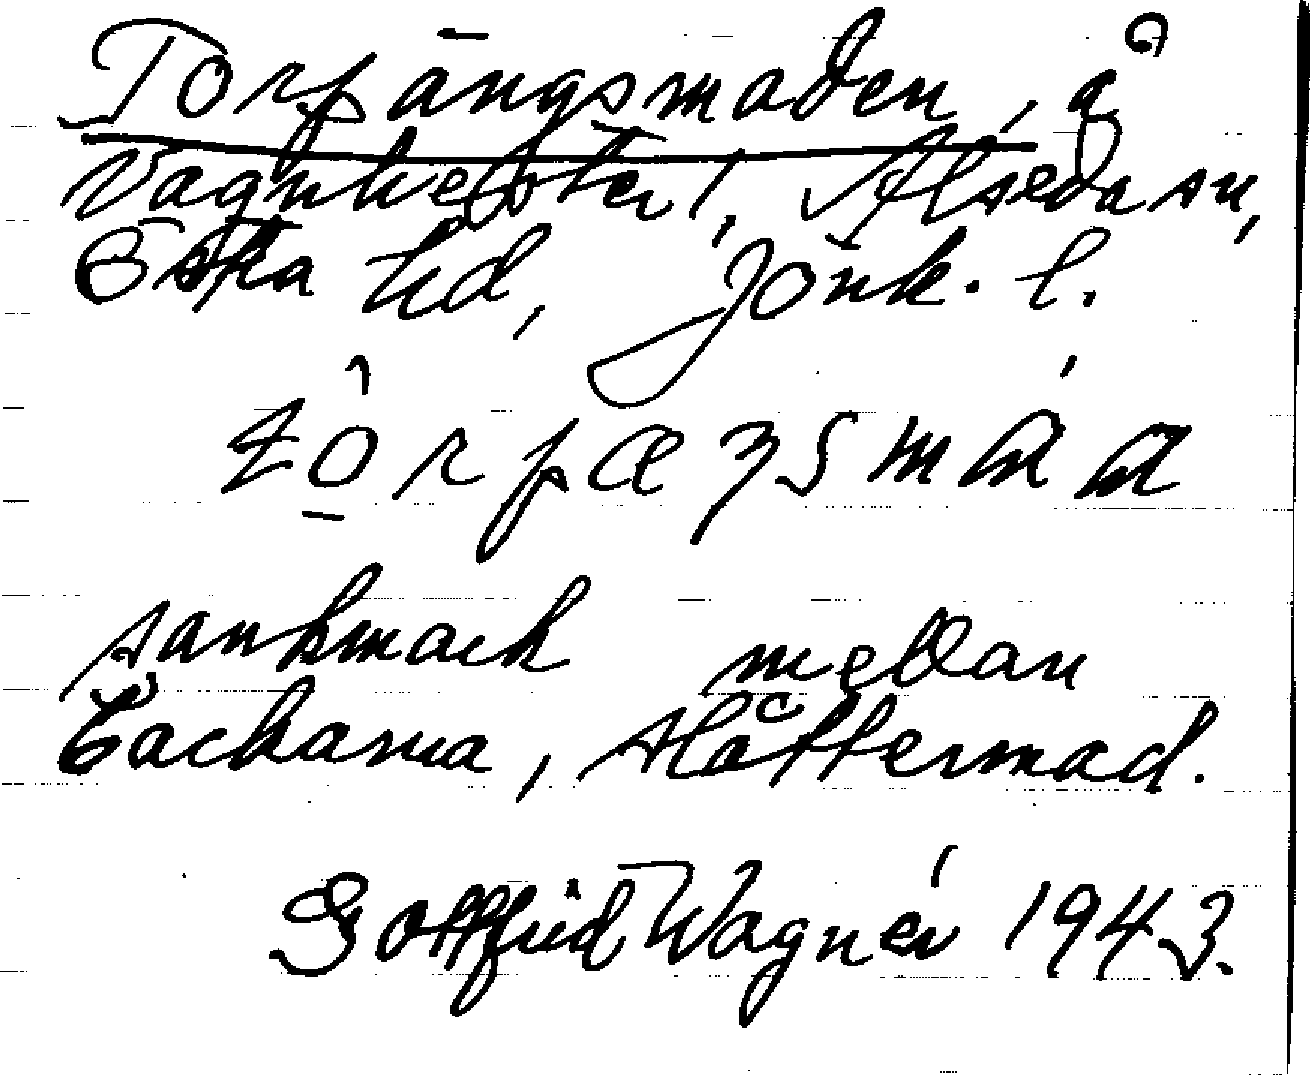 Torpängsmaden, å
Vagnhester, Alseda sn,
Östra hd, Jönk. l.
tôrpæŋsmáa
sankmark mellan
Backarna, slåttermad.
Gottfrid Wagnér 1943.